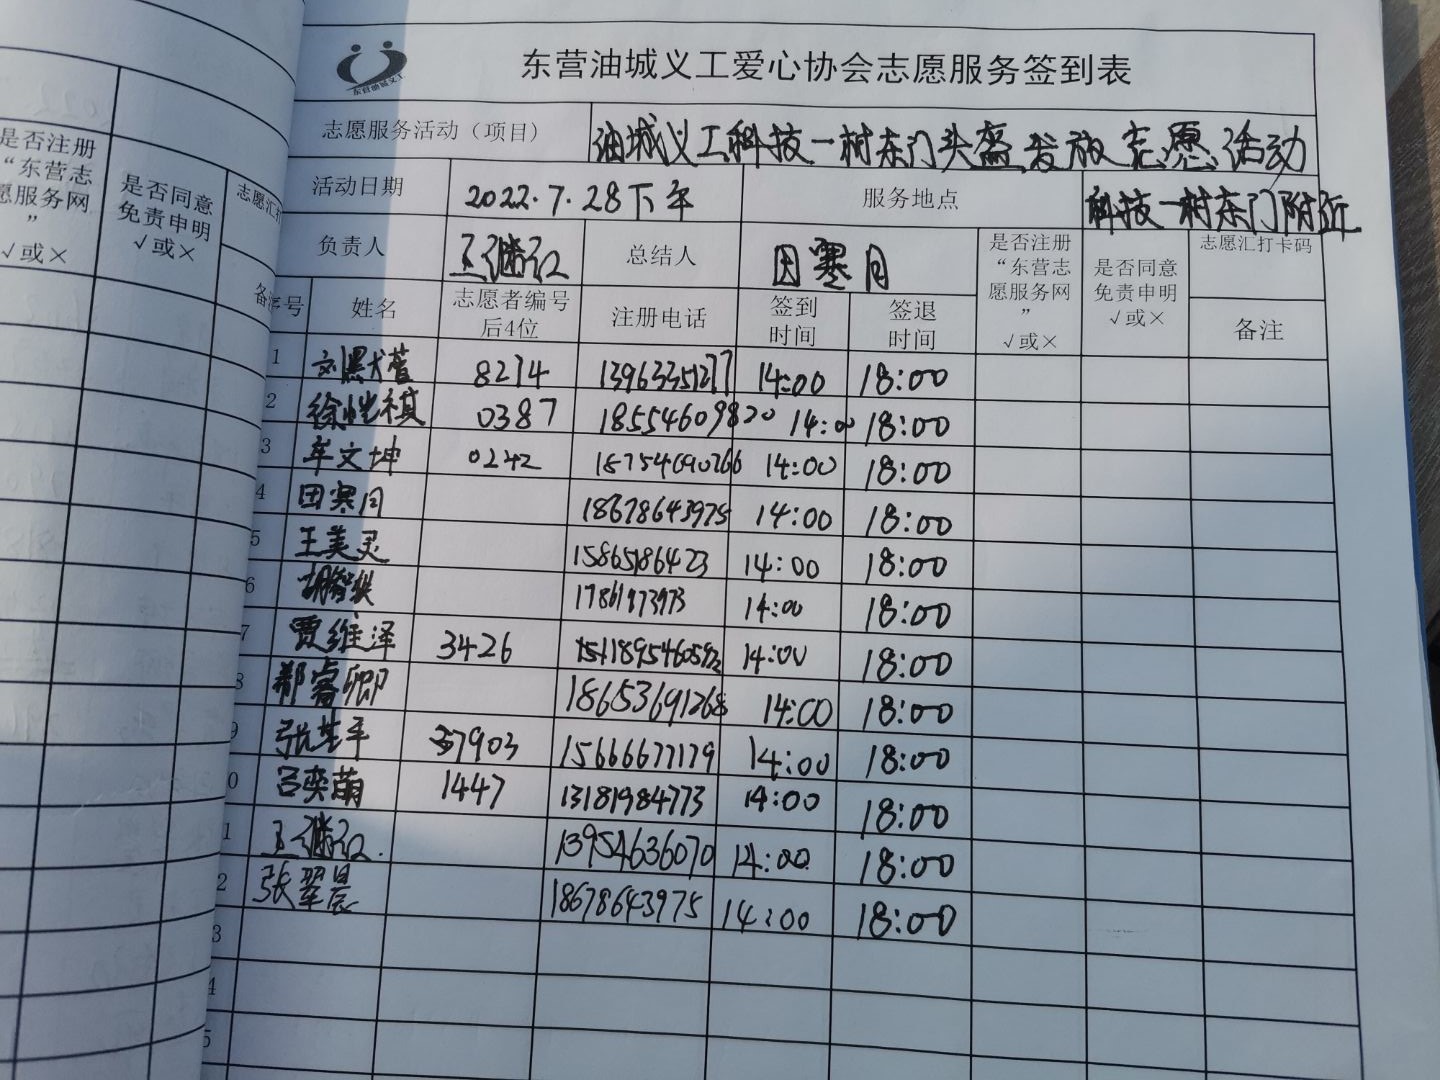 东营油城义工爱心协会志愿服务签到表
东营油城义工
志愿服务活动（项目） 油城义工科技一村东门头盔发放志愿活动
活动日期 2022.7.28下午 服务地点 科技一村东门附近
负责人 王继红 总结人 田寒月
是否注册“东营志愿服务网”√或× 是否同意免责申明√或× 志愿汇打卡码
序号 姓名 志愿者编号后4位 注册电话 签到时间 签退时间 备注
1 8214 13963351277 14:00 18:00
2 徐恺祺 0387 18554609820 14:00 18:00
3 牟文坤 0242 18754690266 14:00 18:00
4 田寒月 18678643975 14:00 18:00
5 王美灵 15865186423 14:00 18:00
6 胡智轶 17861973973 14:00 18:00
7 贾维泽 3426 14:00 18:00
8 郝睿卿 18653691268 14:00 18:00
9 7903 15666677179 14:00 18:00
0 吕奕萌 1447 13181984773 14:00 18:00
1 王继红 13954636070 14:00 18:00
2 张翠晨 18678643975 14:00 18:00
3
4
5
是否注册
“东营志
愿服务网
”
√或×
是否同意
免责申明
√或×
志愿汇打
备